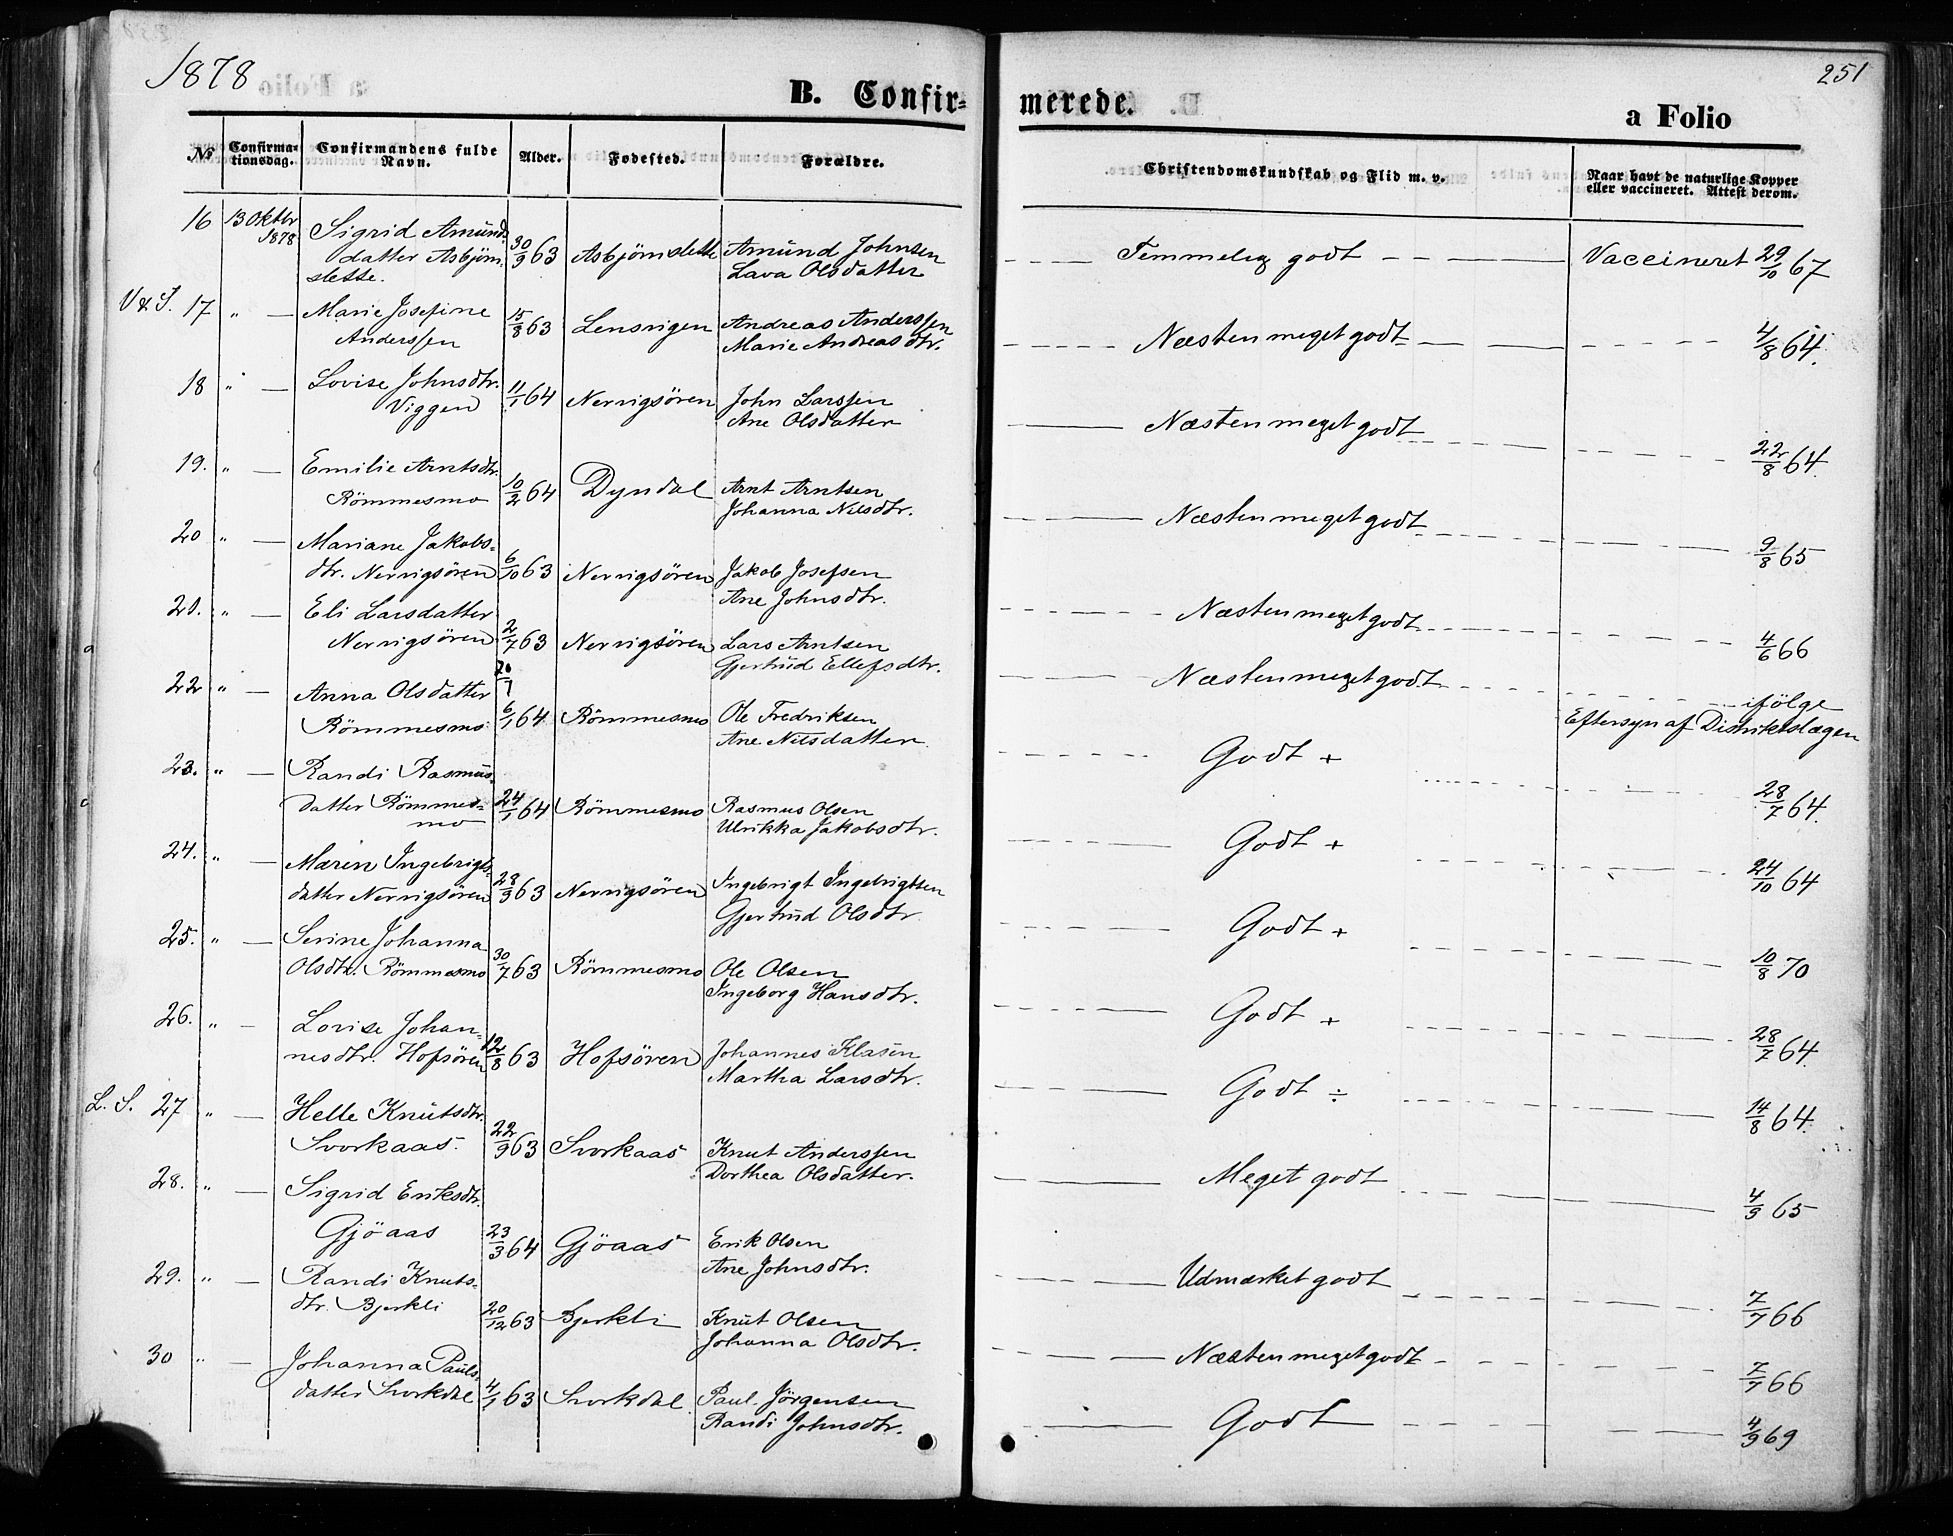 1878
251
B. Confir-
merede.
a Folio
№ Confirma-tionsdag. Confirmandens fulde Navn. Alder. Fødested. Forældre.
Christendomskundskab og Flid m. v. Naar havt de naturlige Kopper eller vaccineret. Attest derom.
16 13 Oktbr 1878 Sigrid Amunds-
datter Asbjørn-
slette. 30/9 63 Asbjørnslette Amund Johnsen
Lava Olsdatter
Temmelig godt Vaccineret 29/10 67
V & S. 17 " Marie Josefine
Anderssen 15/8 63 Lensvigen Andreas Anderssen
Marie Andreasdtr.
Næsten meget godt 4/8 64.
18 " Lovise Johnsdtr.
Viggen 11/1 64 Nervigsören John Larssen
Ane Olsdatter
Næsten meget godt 22/8 64.
19. " Emilie Arntsdtr.
Römmesmo 10/2 64 Dyrdal Arnt Arntsen
Johanna Nilsdtr.
Næsten meget godt 9/8 65
20 " Mariane Jakobs-
dtr. Nervigsören 6/10 63 Nervigsören Jakob Josefsen
Ane Johnsdtr.
Næsten meget godt 4/6 66
21. " Eli Larsdatter
Nervigsören 2/7 63 Nervigsören Lars Arntsen
Gjertrud Ellefsdtr.
Næsten meget godt ifölge
Eftersyn af Distriktslægen
22 " Anna Olsdatter
Römmesmo 6/1 64 Römmesmo Ole Fredriksen
Ane Nilsdatter
Godt + 28/7 64.
23. " Randi Rasmus-
datter Römmes-
mo 24/1 64 Römmesmo Rasmus Olsen
Ulrikka Jakobsdtr.
Godt + 24/10 64
24. " Maren Ingebrigts-
datter Nervigsören 28/9 63 Nervigsören Ingebrigt Ingebrigtsen
Gjertrud Olsdtr.
Godt + 10/8 70
25. " Serine Johanna
Olsdtr. Römmesmo 30/7 63 Römmesmo Ole Olsen
Ingeborg Hansdtr.
Godt + 28/7 64.
26. " Lovise Johan-
nesdtr. Hofsören 12/8 63 Hofsören Johannes Klasen
Martha Larsdtr.
Godt ÷ 14/8 64.
L. S. 27 " Helle Knutsdtr.
Svorkaas. 22/9 63 Svorkaas Knut Anderssen
Dorthea Olsdatter.
Meget godt 4/9 65
28. " Sigrid Eriksdtr.
Gjöaas 23/3 64 Gjöaas Erik Olsen
Ane Johnsdtr.
Udmærket godt 7/7 66
29. " Randi Knuts-
dtr. Bjerkli 20/12 63 Bjerkli Knut Olsen
Johanna Olsdtr.
Næsten meget godt 7/7 66
30 " Johanna Pauls-
datter Svorkdal 4/1 63 Svorkdal Paul Jörgensen
Randi Johnsdtr.
Godt 4/9 69